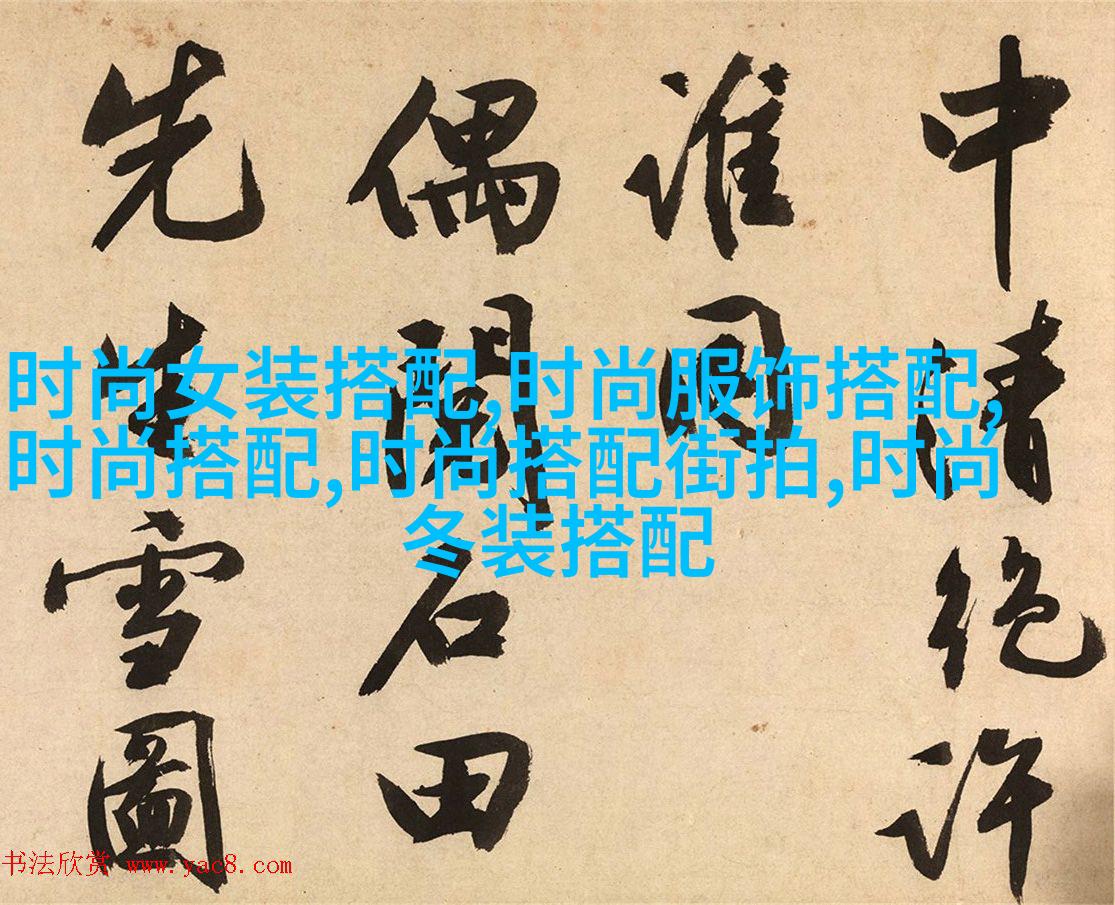 中清絶許
誰同
偶閲石田
先生雪圖
时尚女装搭配,时尚服饰搭配,
时尚搭配,时尚搭配街拍,时尚
冬装搭配
书法欣赏 www.yac8.com